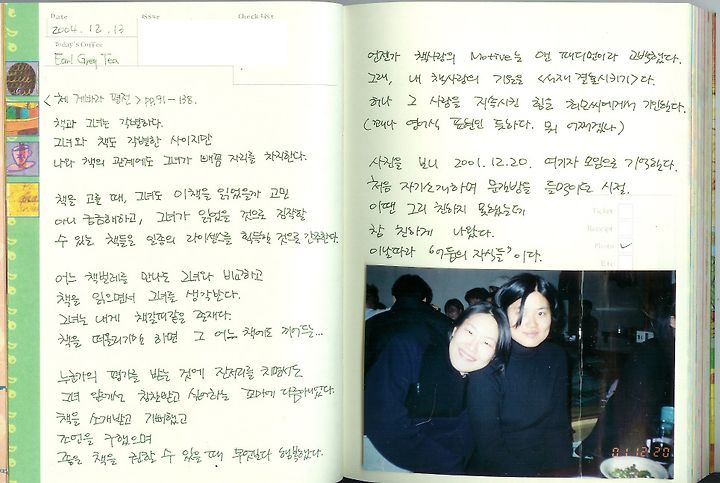 Date
Issue
Check List
2004. 12. 13
Today's Coffee
Earl Grey Tea
<체 게바라 평전> pp.91-138.
책과 그녀는 각별하다.
그녀와 책도 각별한 사이지만
나와 책의 관계에도 그녀가 배꼽 자리를 차지한다.
책을 고를 때, 그녀도 이책을 읽었을까 고민
아니 궁금해하고, 그녀가 읽었을 것으로 짐작할
수 있는 책들은 인증의 라이센스를 획득한 것으로 간주한다.
어느 책벌레를 만나든 그녀와 비교하고
책을 읽으면서 그녀를 생각한다.
그녀는 내게 책갈피같은 존재다.
책을 떠올리기만 하면 그 어느 책에도 끼어드는...
누군가의 평가를 받는 것에 진저리를 치면서도
그녀 앞에선 칭찬받고 싶어하는 꼬마에 다름아니었다.
책을 소개받고 기뻐했고
조언을 구했으며
좋은 책을 권할 수 있을 때 무엇보다 행복했다.
언젠가 책사랑의 Motive는 연 때디먼이라 고백했다.
그래, 내 책사랑의 기원은 <서재 결혼시키기>다.
허나 그 사랑을 지속시킨 힘은 최모씨에게서 기인한다.
(꽤나 영어식 표현인 듯하다. 뭐 어쩌겠나)
사진을 보니 2001. 12. 20. 여기자 모임으로 기억한다.
처음 자기소개하며 문간방을 들먹이던 시절.
이땐 그리 친하지 못했는데
참 친하게 나왔다.
이날따라 "어둠의 자식들"이다.
Ticket
Receipt
Photo ✓
Etc
01 12 20